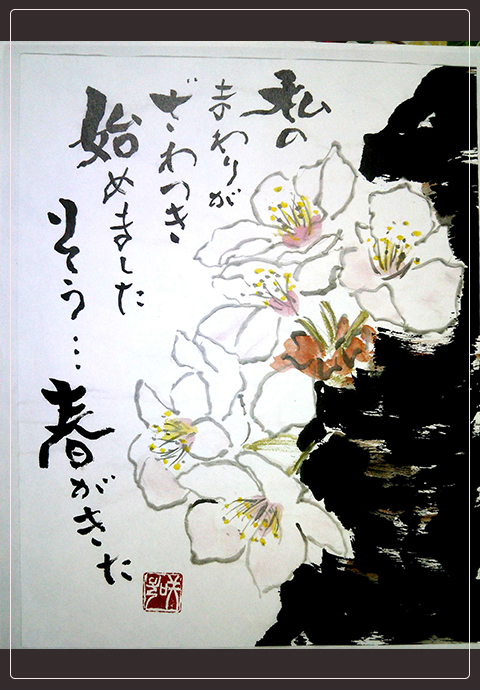 私の
まわりが
ざわつき
始めました
りそう…
春がきた
咲